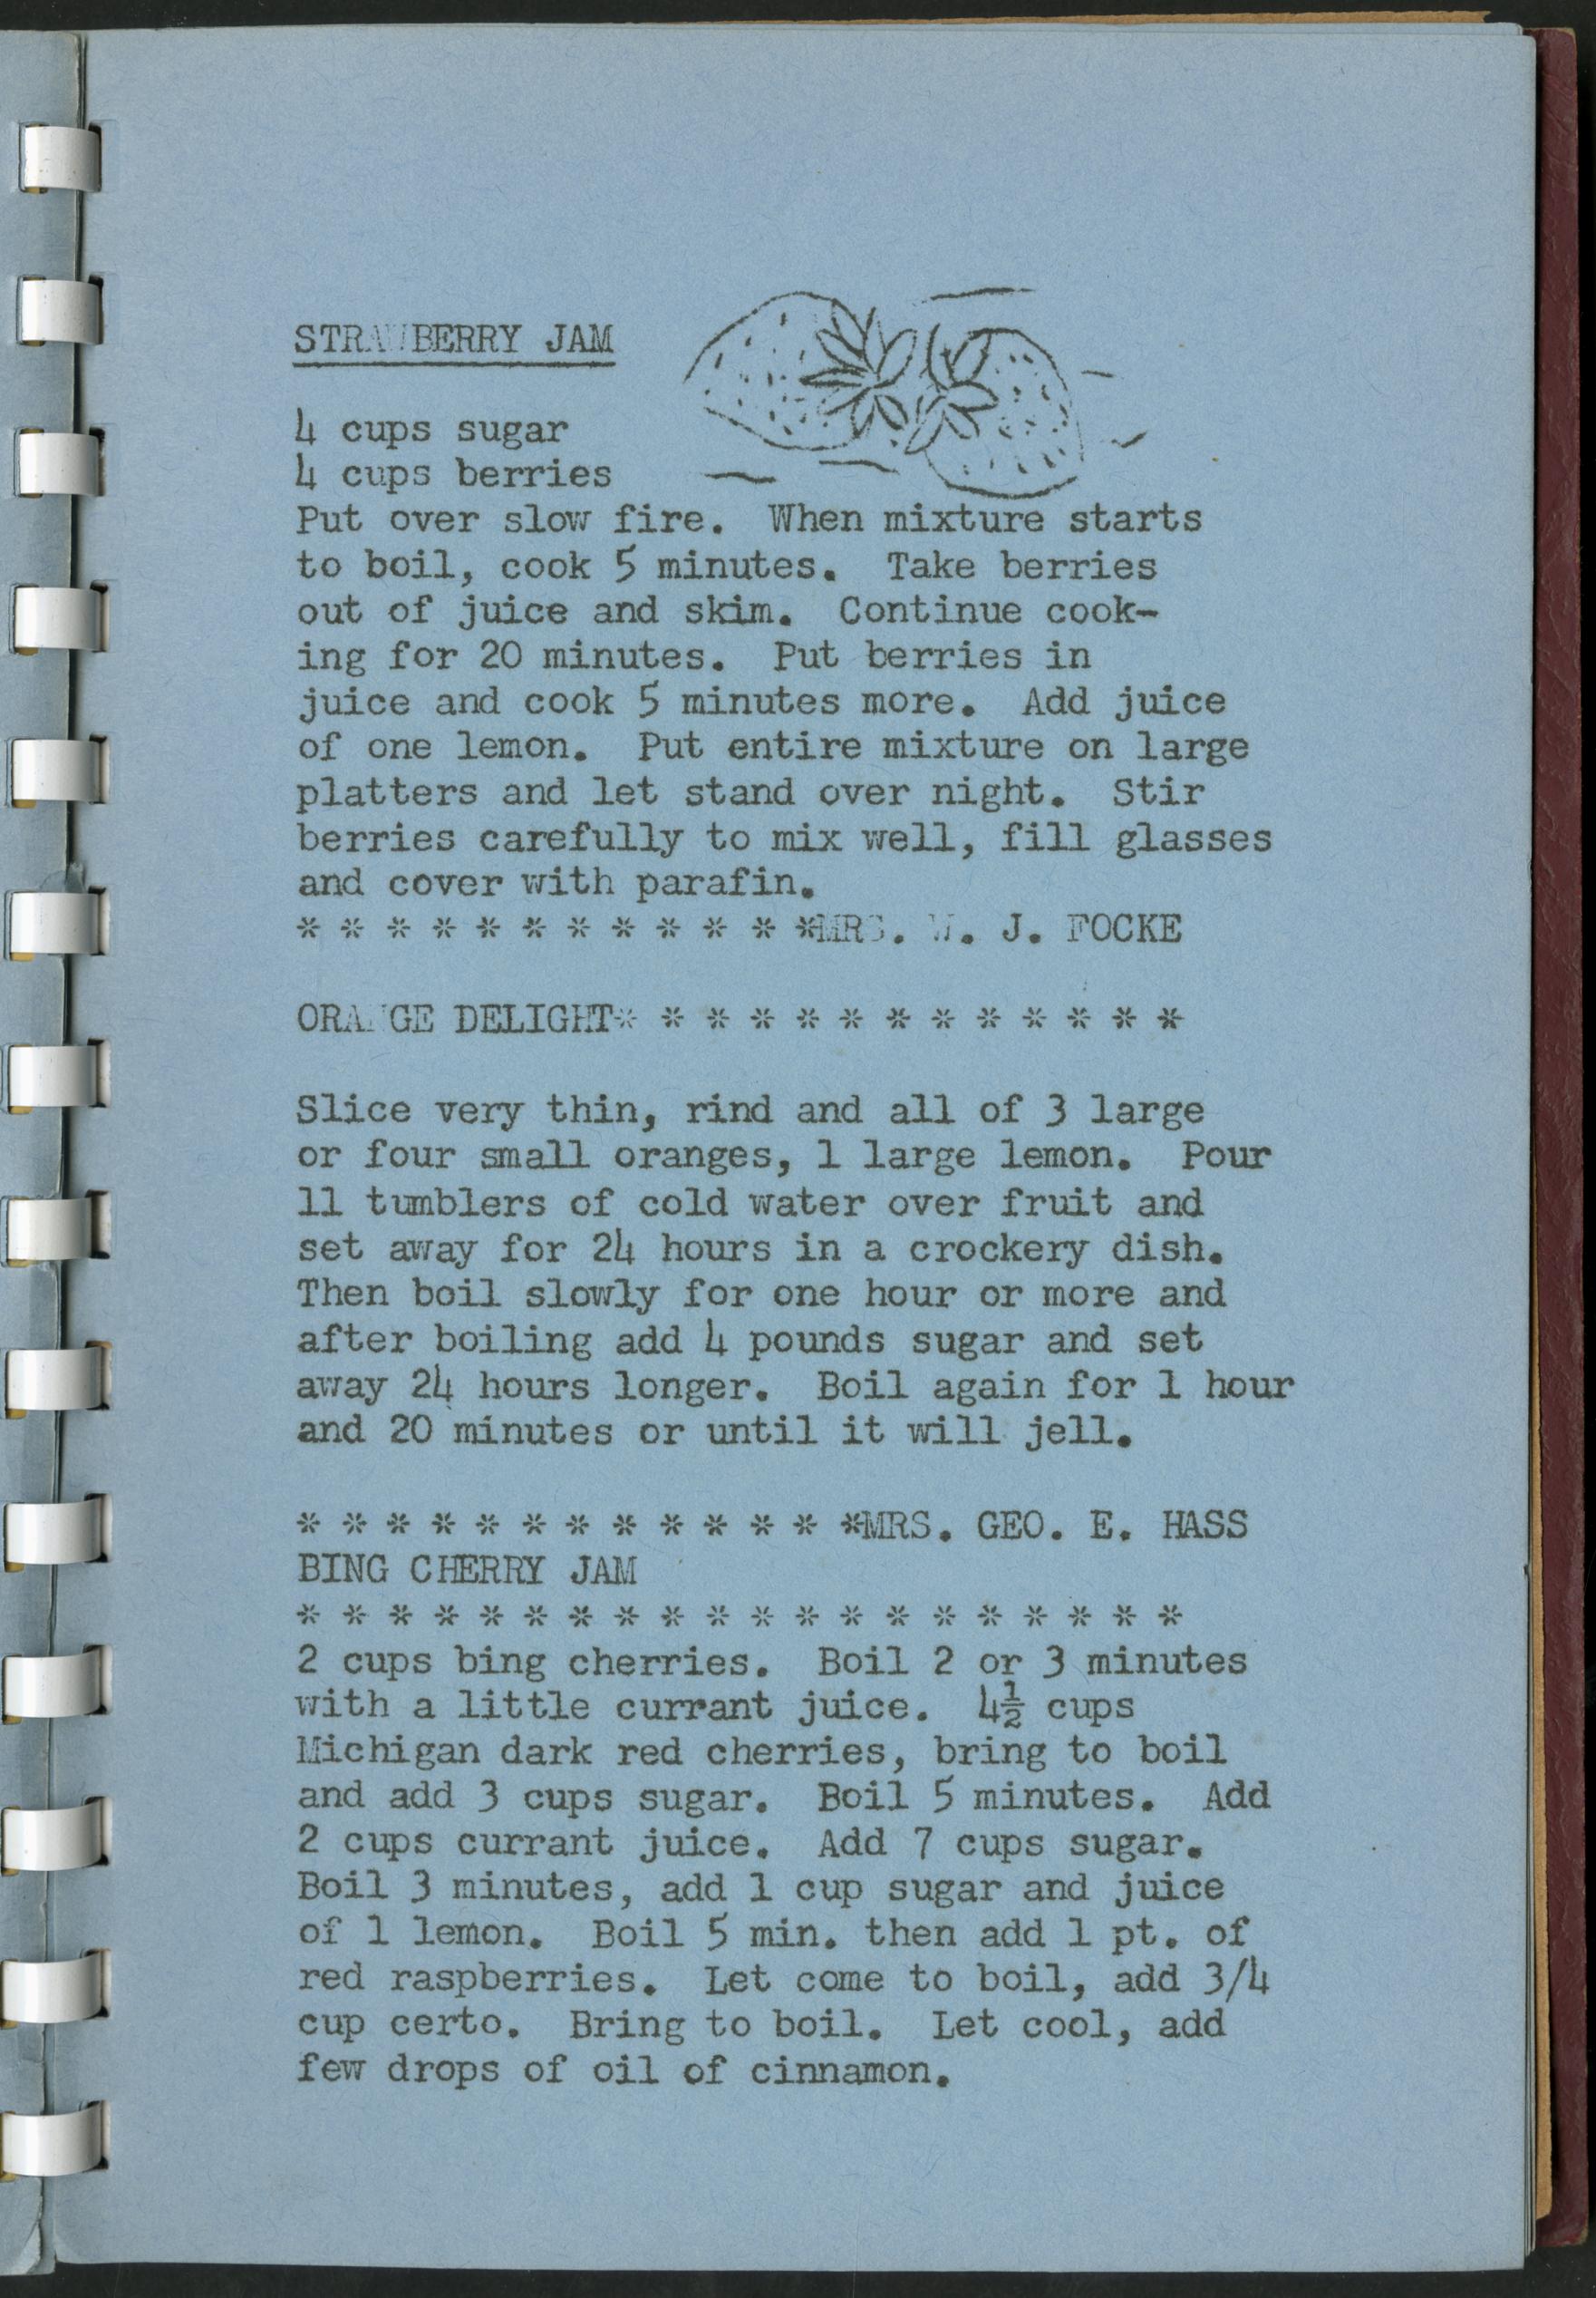 STRAWBERRY JAM
4 cups sugar
4 cups berries
Put over slow fire.  When mixture starts
to boil, cook 5 minutes.  Take berries
out of juice and skim.  Continue cook-
ing for 20 minutes.  Put berries in
juice and cook 5 minutes more.  Add juice
of one lemon.  Put entire mixture on large
platters and let stand over night.  Stir
berries carefully to mix well, fill glasses
and cover with parafin.
* * * * * * * * * * * *MRS. W. J. FOCKE
ORANGE DELIGHT* * * * * * * * * * * * *
Slice very thin, rind and all of 3 large
or four small oranges, 1 large lemon.  Pour
11 tumblers of cold water over fruit and
set away for 24 hours in a crockery dish.
Then boil slowly for one hour or more and
after boiling add 4 pounds sugar and set
away 24 hours longer.  Boil again for 1 hour
and 20 minutes or until it will jell.
* * * * * * * * * * * * *MRS. GEO. E. HASS
BING CHERRY JAM
* * * * * * * * * * * * * * * * * * * *
2 cups bing cherries.  Boil 2 or 3 minutes
with a little currant juice.  4½ cups
Michigan dark red cherries, bring to boil
and add 3 cups sugar.  Boil 5 minutes.  Add
2 cups currant juice.  Add 7 cups sugar.
Boil 3 minutes, add 1 cup sugar and juice
of 1 lemon.  Boil 5 min. then add 1 pt. of
red raspberries.  Let come to boil, add 3/4
cup certo.  Bring to boil.  Let cool, add
few drops of oil of cinnamon.